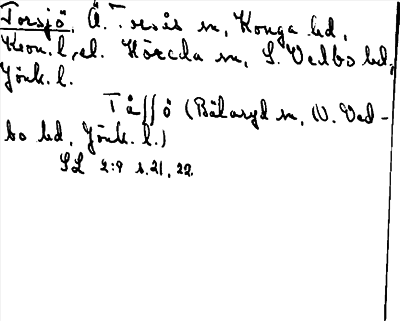 Torsjö, Ä. Torsås sn, Konga hd,
Kron. l., el. Hörcda sn, S. Vedbo hd,
Jönk. l.
Tåssö (Bälaryd sn, N. Ved-
bo hd, Jönk. l.)
SL 2:9 s. 21, 22.